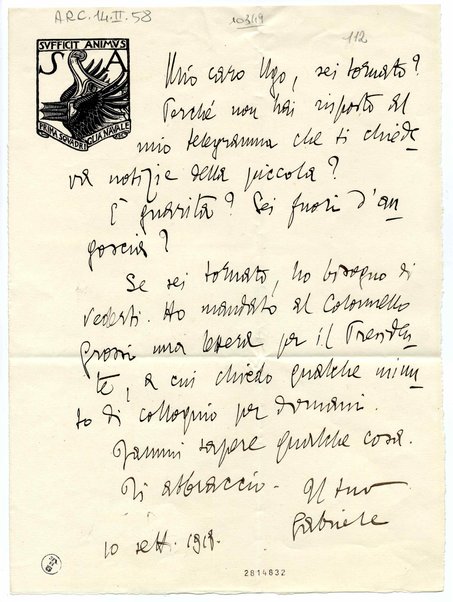 A.R.C. 14.II.58
103/19
112
SVFFICIT ANIMVS
S A
PRIMA SQVADRIGLIA NAVALE
Mio caro Ugo, sei tornato?
Perché non hai risposto al
mio telegramma che ti chiede
va notizie della piccola?
È guarita? Sei fuori d'an
goscia?
Se sei tornato, ho bisogno di
vederti. Ho mandato al Colonnello
Grossi una lettera per il Presiden
te, a cui chiedo qualche minu
to di colloquio per domani.
Fammi sapere qualche cosa.
Ti abbraccio. Il tuo
Gabriele
10 sett. 1918.
2814832